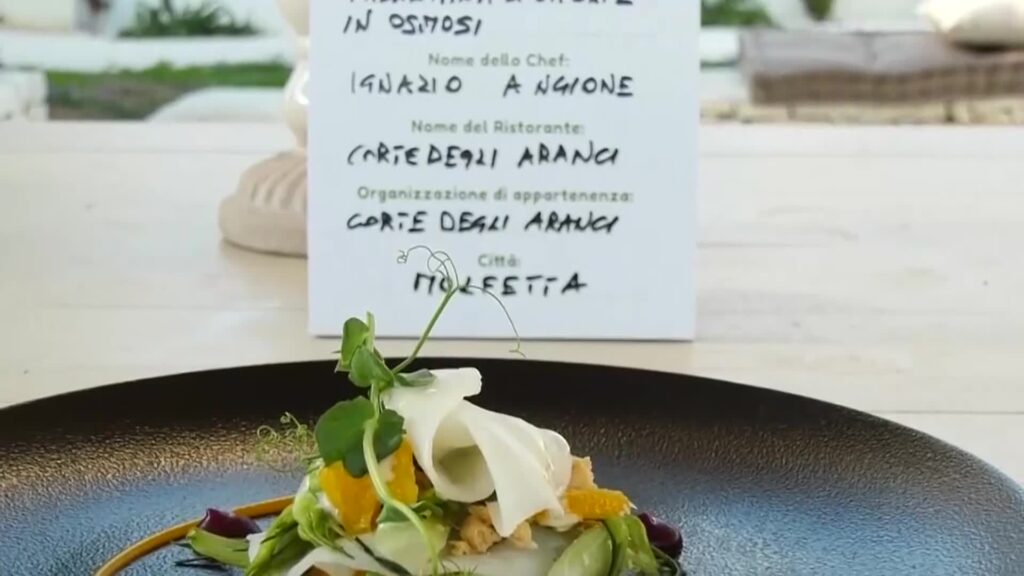 IN OSMOSI
Nome dello Chef:
IGNAZIO ANGIONE
Nome del Ristorante:
CORTE DEGLI ARANCI
Organizzazione di appartenenza:
CORTE DEGLI ARANCI
Città:
MOLFETTA